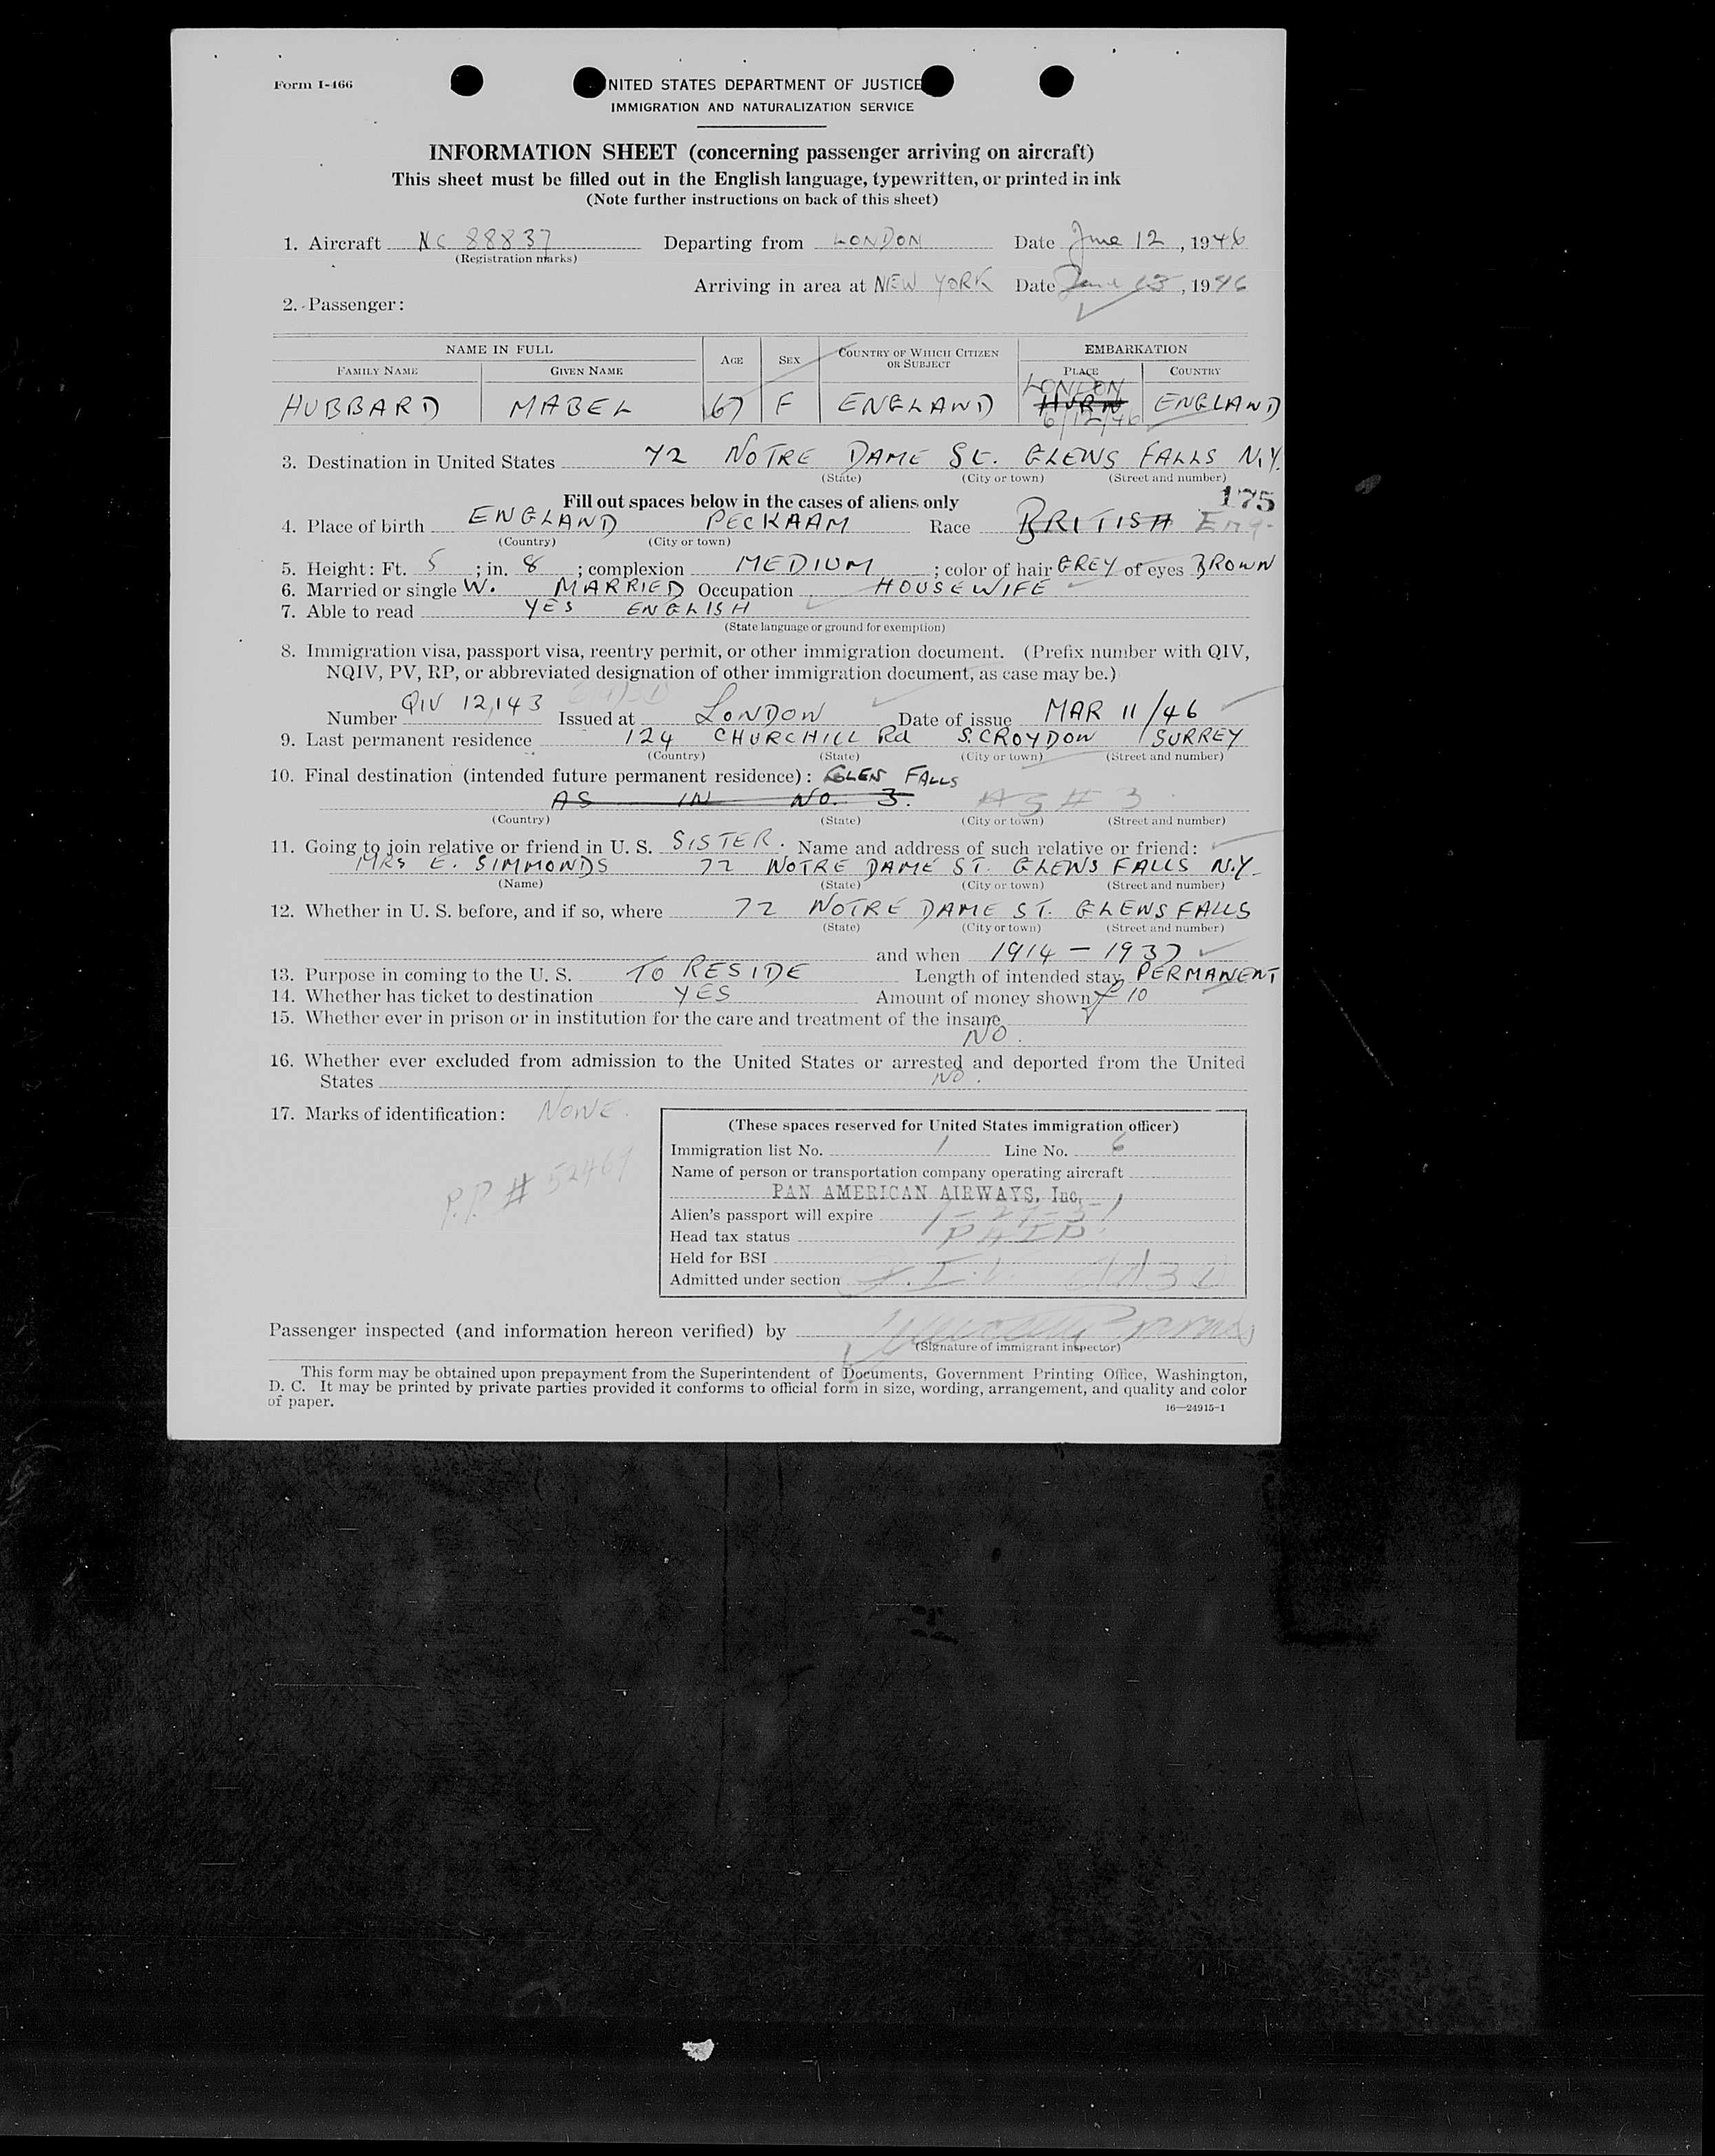 Form I-466
UNITED STATES DEPARTMENT OF JUSTICE
IMMIGRATION AND NATURALIZATION SERVICE
INFORMATION SHEET (concerning passenger arriving on aircraft)
This sheet must be filled out in the English language, typewritten, or printed in ink
(Note further instructions on back of this sheet)
1. Aircraft NC 88837 Departing from LONDON Date June 12, 1946
(Registration marks)
Arriving in area at NEW YORK Date June 13, 1946
2. Passenger:
NAME IN FULL AGE SEX COUNTRY OF WHICH CITIZEN OR SUBJECT EMBARKATION
FAMILY NAME GIVEN NAME PLACE COUNTRY
LONDON
HUBBARD MABEL 67 F ENGLAND HURN ENGLAND
6/12/46
3. Destination in United States 72 NOTRE DAME ST. GLENS FALLS N.Y.
(State) (City or town) (Street and number)
175
Fill out spaces below in the cases of aliens only
4. Place of birth ENGLAND PECKAAM Race BRITISH Eng.
(Country) (City or town)
5. Height: Ft. 5; in. 8; complexion MEDIUM; color of hair GREY of eyes BROWN
6. Married or single W. MARRIED Occupation HOUSEWIFE
7. Able to read YES ENGLISH
(State language or ground for exemption)
8. Immigration visa, passport visa, reentry permit, or other immigration document. (Prefix number with QIV,
NQIV, PV, RP, or abbreviated designation of other immigration document, as case may be.)
Number QIV 12,143 Issued at LONDON Date of issue MAR 11/46
9. Last permanent residence 124 CHURCHILL Rd S. CROYDON SURREY
(Country) (State) (City or town) (Street and number)
10. Final destination (intended future permanent residence): GLEN FALLS
AS IN NO. 3. AS # 3
(Country) (State) (City or town) (Street and number)
11. Going to join relative or friend in U. S. SISTER. Name and address of such relative or friend:
MRS E. SIMMONDS 72 NOTRE DAME ST. GLENS FALLS N.Y.
(Name) (State) (City or town) (Street and number)
12. Whether in U. S. before, and if so, where 72 NOTRE DAME ST. GLENS FALLS
(State) (City or town) (Street and number)
and when 1914 - 1937
13. Purpose in coming to the U. S. TO RESIDE Length of intended stay PERMANENT
14. Whether has ticket to destination YES Amount of money shown £10
15. Whether ever in prison or in institution for the care and treatment of the insane
NO.
16. Whether ever excluded from admission to the United States or arrested and deported from the United
States NO.
17. Marks of identification: NONE.
P.P. # 52467
(These spaces reserved for United States immigration officer)
Immigration list No. 1 Line No. 6
Name of person or transportation company operating aircraft
PAN AMERICAN AIRWAYS, Inc.
Alien's passport will expire 1-27-51
Head tax status PAID
Held for BSI
Admitted under section
Passenger inspected (and information hereon verified) by
(Signature of immigrant inspector)
This form may be obtained upon prepayment from the Superintendent of Documents, Government Printing Office, Washington,
D. C. It may be printed by private parties provided it conforms to official form in size, wording, arrangement, and quality and color
of paper.
16—24915-1